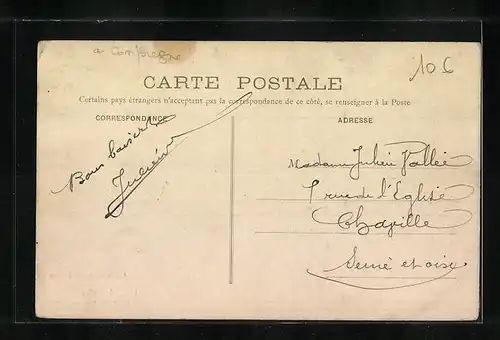 a Compiegne
106
CARTE POSTALE
Certains pays étrangers n'acceptant pas la correspondance de ce côté, se renseigner à la Poste
CORRESPONDANCE
ADRESSE
Bons baisers
Julien
Madame Julien Vallée
7 rue de l'Eglise
Chaville
Seine et oise